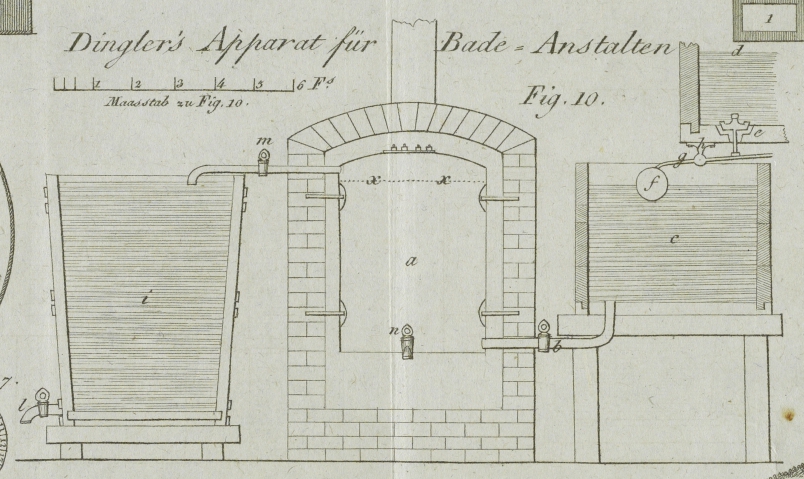 Dingler's Apparat für Bade=Anstalten
1 2 3 4 5 6 Fs
Maasstab zu Fig. 10.
Fig. 10.
1
d
e
h
g
f
m
x x
c
a
i
n
b
7.
l